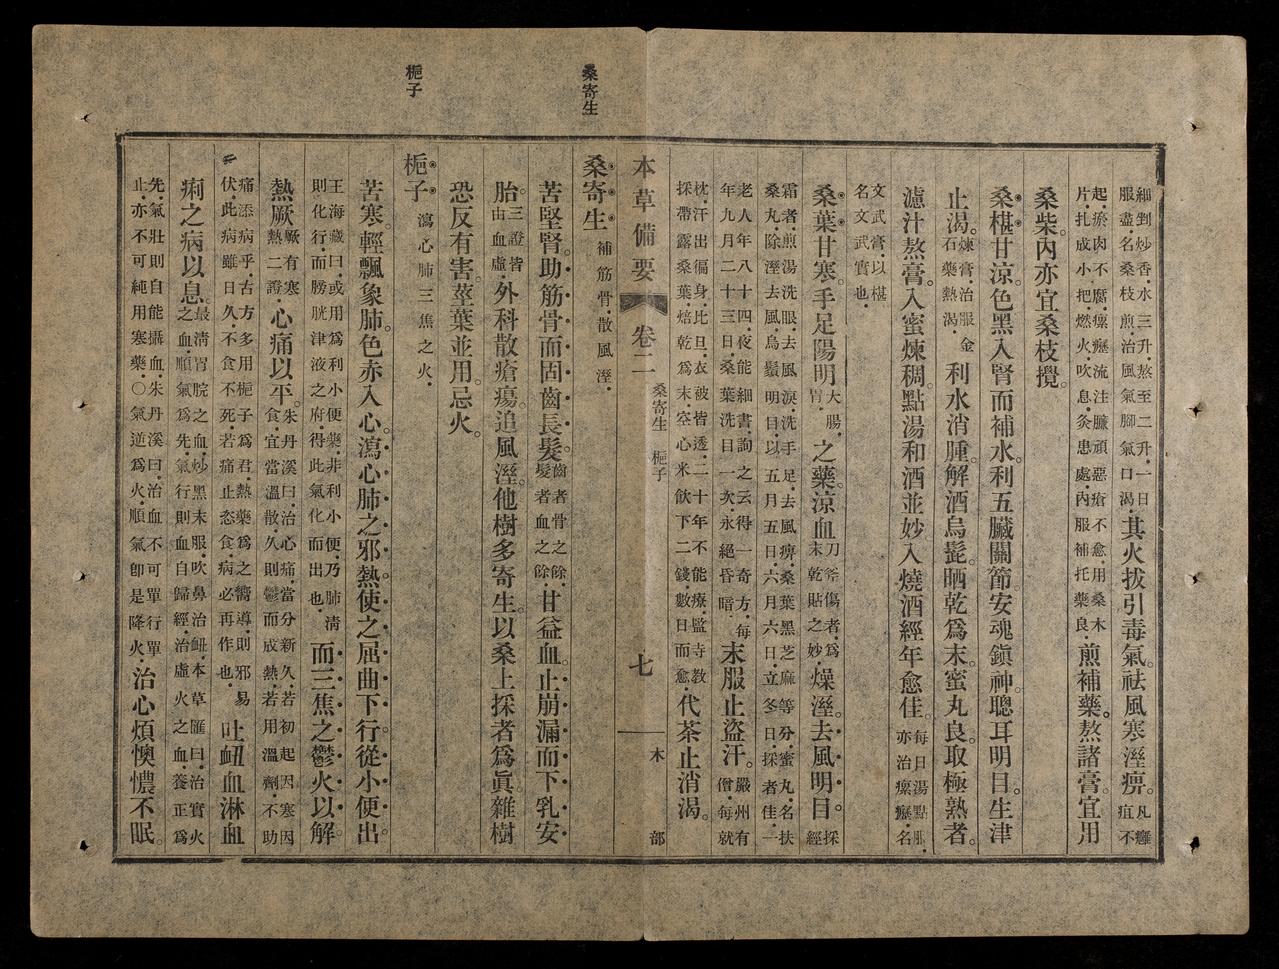 桑寄生
梔子
細剉炒香.水三升.熬至二升.一日服盡.名桑枝煎.治風氣腳氣口渴.其火拔引毒氣。祛風寒溼痹。凡癰疽不
起.瘀肉不腐.瘰癧流注.臁頑惡瘡不愈.用桑木片.扎成小把.燃火.吹息.灸患處.內服補托藥良.煎補藥。熬諸膏。宜用
桑柴。內亦宜桑枝攪。
桑椹甘涼。色黑入腎而補水。利五臟關節。安魂鎭神。聰耳明目。生津
止渴。煉膏.治服金石藥熱渴.利水消腫。解酒烏髭。晒乾爲末。蜜丸良。取極熟者。
濾汁熬膏。入蜜煉稠。點湯和酒並妙。入燒酒經年愈佳。每日湯點服.亦治瘰癧.名
文武膏.以椹名文武實也.
桑葉甘寒。手足陽明大腸.胃.之藥。涼血刀斧傷者.爲末乾貼之妙.燥溼。去風明目。採經
霜者.煎湯洗眼.去風淚.洗手足.去風痹.桑葉黑芝麻等分.蜜丸.名扶桑丸.除溼去風.烏鬚明目.以五月五日.六月六日.立冬日.採者佳.一
老人年八十四.夜能細書.詢之云得一奇方.每年九月二十三日.桑葉洗目一次.永絕昏暗.末服止盜汗。嚴州有僧.每就
枕.汗出徧身.比旦.衣被皆透.二十年不能療.監寺教採帶露桑葉焙乾爲末.空心米飲下二錢.數日而愈.代茶止消渴。
本草備要 卷二 桑寄生 梔子 七 木部
桑寄生 補筋骨.散風溼.
苦堅腎。助筋骨而固齒長髮。齒者骨之餘.髮者血之餘.甘益血。止崩漏而下乳安
胎。三證皆由血虛.外科散瘡瘍。追風溼。他樹多寄生。以桑上採者爲眞。雜樹
恐反有害。莖葉並用。忌火。
梔子 瀉心肺三焦之火.
苦寒。輕飄象肺。色赤入心。瀉心肺之邪熱。使之屈曲下行。從小便出
王海藏曰.或用爲利小便藥.非利小便.乃肺清則化行.而膀胱津液之府.得此氣化而出也.而三焦之鬱火以解
熱厥厥有寒熱二證.心痛以平。朱丹溪曰.治心痛.當分新久.若初起因寒因食.宜當溫散.久則鬱而成熱.若用溫劑.不助
痛添病乎.古方多用梔子爲君.熱藥爲之嚮導.則邪易伏.此病雖日久.不食不死.若痛止恣食.病必再作也.吐衄血淋血
痢之病以息。最清胃脘之血.炒黑末服.吹鼻治衄.本草匯曰.治實火之血.順氣爲先.氣行則血自歸經.治虛火之血.養正爲
先.氣壯則自能攝血.朱丹溪曰.治血不可單行單止.亦不可純用寒藥.○氣逆爲火.順氣卽是降火.治心煩懊憹不眠。